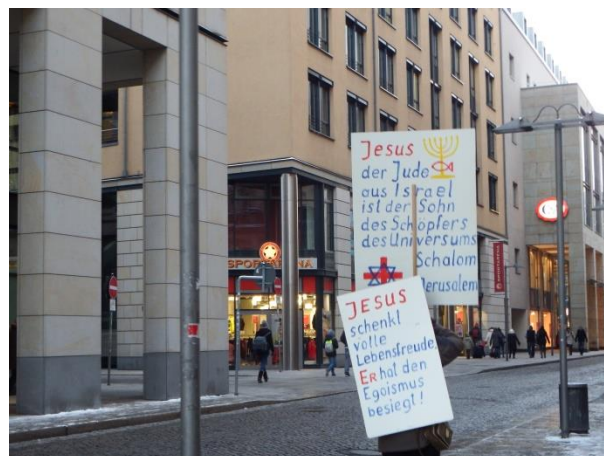 Jesus
der Jude
aus Israel
ist der Sohn
des Schöpfers
des Universums
Schalom
Jerusalem
JESUS
schenkt
volle
Lebensfreude
ER hat den
Egoismus
besiegt!